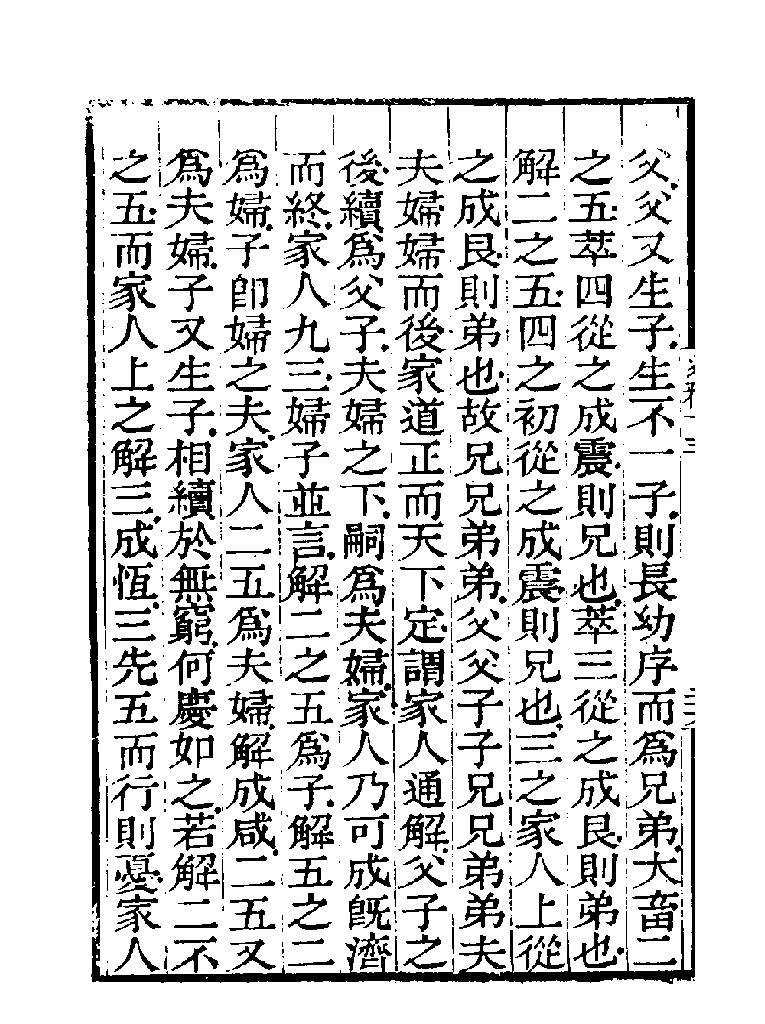 父父又生子生不一子則長幼序而為兄弟大畜二
之五萃四從之成震則兄也萃三從之成艮則弟也
解二之五四之初從之成震則兄也三之家人上從
之成艮則弟也故兄兄弟弟父父子子兄兄弟弟夫
夫婦婦而後家道正而天下定謂家人通解父子之
後續爲父子夫婦之下嗣爲夫婦家人乃可成旣濟
而終家人九三婦子並言解二之五爲子解五之二
爲婦子卽婦之夫家人二五爲夫婦解成咸二五又
爲夫婦子又生子相續於無窮何慶如之若解二不
之五而家人上之解三成恆三先五而行則憂家人